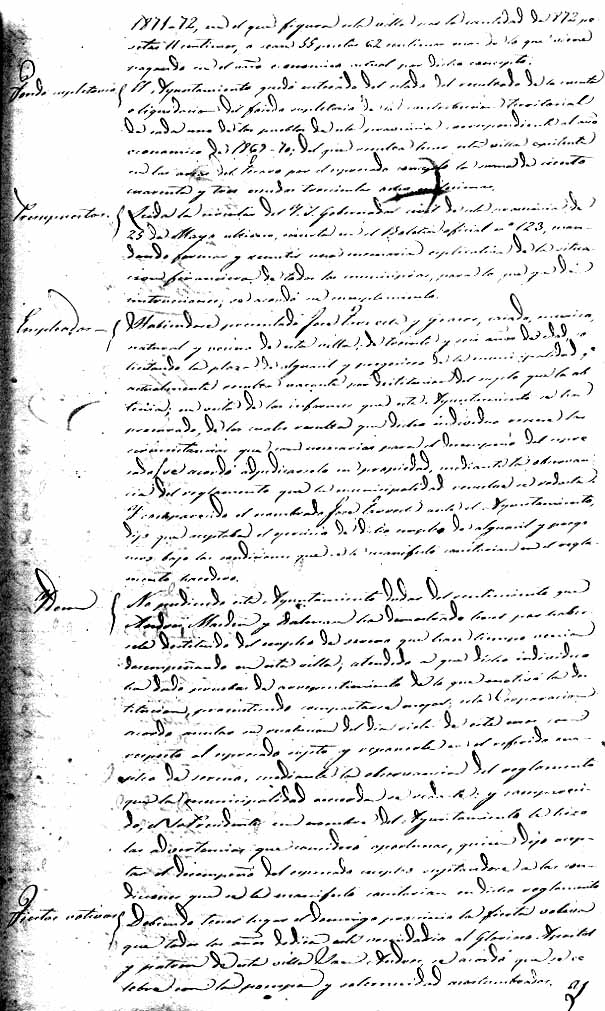 1871 a 72, en el que figura esta villa con la cantidad de 872 pe
setas 11 centimos, o sean 55 pesetas 62 centimos mas de lo que viene
pagando en el año economico actual por dicho concepto.
Fondo supletorio El Ayuntamiento quedó enterado del estado del resultado de la cuenta
o liquidacion del fondo supletorio de la contribucion territorial
de cada uno de los pueblos de esta provincia correspondiente al año
economico de 1869-70; del que resulta tiene esta villa existente
en las arcas del Tesoro por el espresado concepto la suma de ciento
cuarenta y tres escudos trescientas milesimas.
Presupuestos. Leida la circular del Y. S. Gobernador civil de esta provincia de
25 de Mayo ultimo, inserta en el Boletin oficial nº 123, man
dando formar y remitir una memoria esplicativa de la situa
cion financiera de todos los municipios, para lo que da
instrucciones, se acordó su cumplimiento.
Empleados Habiendose presentado José casado, musico,
natural y vecino de esta villa, de treinta y seis años de edad, so
licitando la plaza de alguacil y pregonero de la municipalidad y
actualmente vacante por destitucion del sugeto que la ob
tenia, en vista de los informes que este Ayuntamiento se ha
procurado, de los cuales resulta que dicho individuo reune las
circunstancias que son necesarias para el desempeño del espre
sado, se acordó adjudicarselo en propiedad, mediante la observan
cia del reglamento que la municipalidad
Y compareciendo el nombrado José ante el Ayuntamiento,
dijo que aceptaba el ejercicio de dicho empleo de alguacil y prego
nero bajo las condiciones que se le manifestó contienen en el regla
mento
Idem No pudiendo este Ayuntamiento dudar del sentimiento que
Andres y ha demostrado tener por haber
sele destituido del empleo de sereno que hace tiempo venia
desempeñando en esta villa, atendido a que dicho individuo
ha dado pruebas de arrepentimiento de lo que motivó la des
titucion, prometiendo comportarse mejor; esta Corporacion
acordó anular su del dia siete de este mes con
respecto al espresado sugeto y reponerle en el referido em
pleo de sereno, mediante la observancia del reglamento
que la municipalidad acordó se redacte: y compareci
do, el Sr Presidente en nombre del Ayuntamiento le hizo
las advertencias que consideró oportunas, quien dijo acep
tar el desempeño del espresado empleo sujetandose a las con
diciones que se le manifestó contienen en dicho reglamento
Fiestas votivas Debiendo tener lugar el domingo proximo la fiesta votiva
que todos los años dedica este vecindario al Glorioso Apostol
y patron de esta villa San Andres, se acordó que se ce
lebre con la pompa y solemnidad acostumbradas.